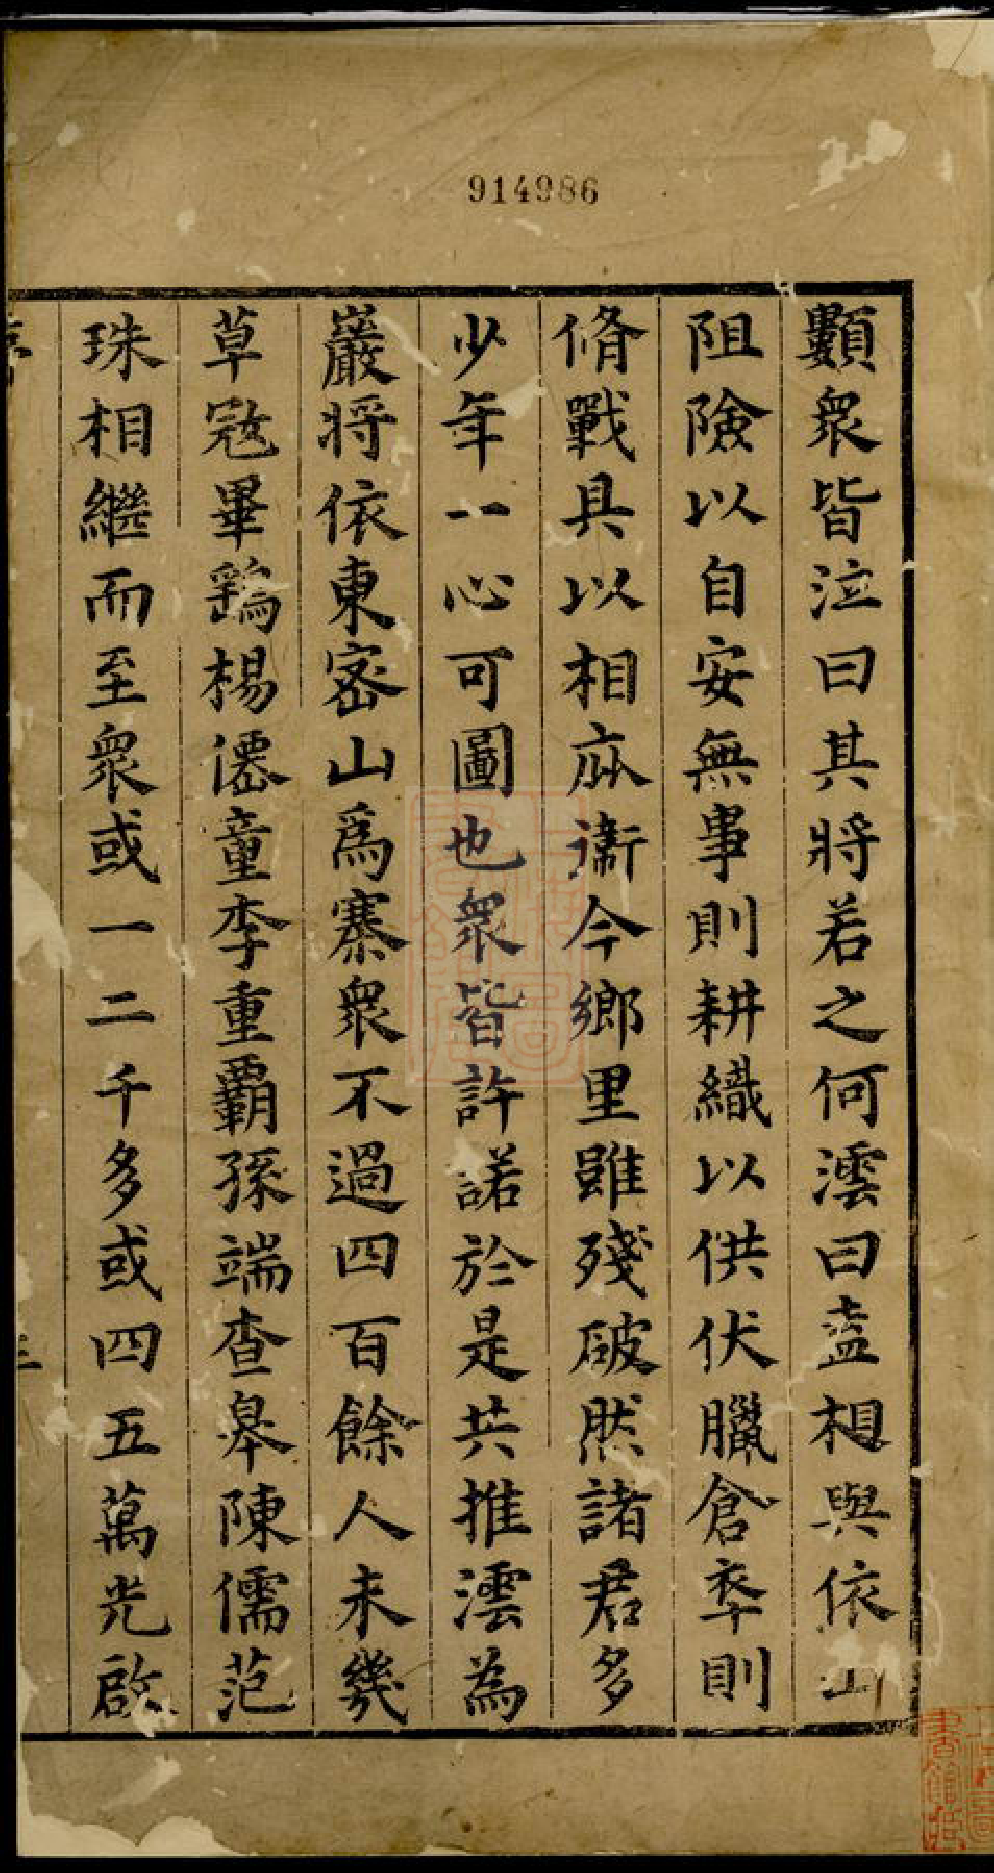 914986
顟衆皆泣曰其將若之何澐曰盍相與依山
阻險以自安無事則耕織以供伏臘倉卒則
脩戰具以相庇衛今鄉里雖殘破然諸君多
少年一心可圖也衆皆許諾於是共推澐為
巖將依東密山爲寨衆不過四百餘人未幾
草寇畢鷂楊僊童李重霸孫端查皋陳儒范
珠相繼而至衆或一二千多或四五萬光啟
三